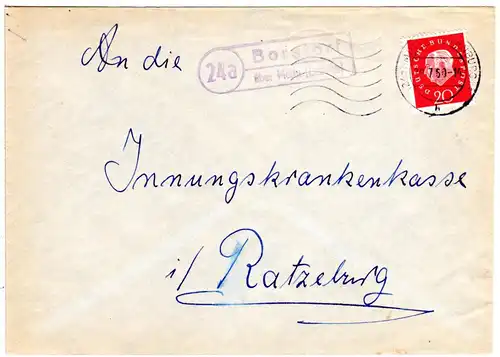 An die
24a
über
DEUTSCHE BUNDESPOST
20
Innungskrankenkasse
i/ Ratzeburg